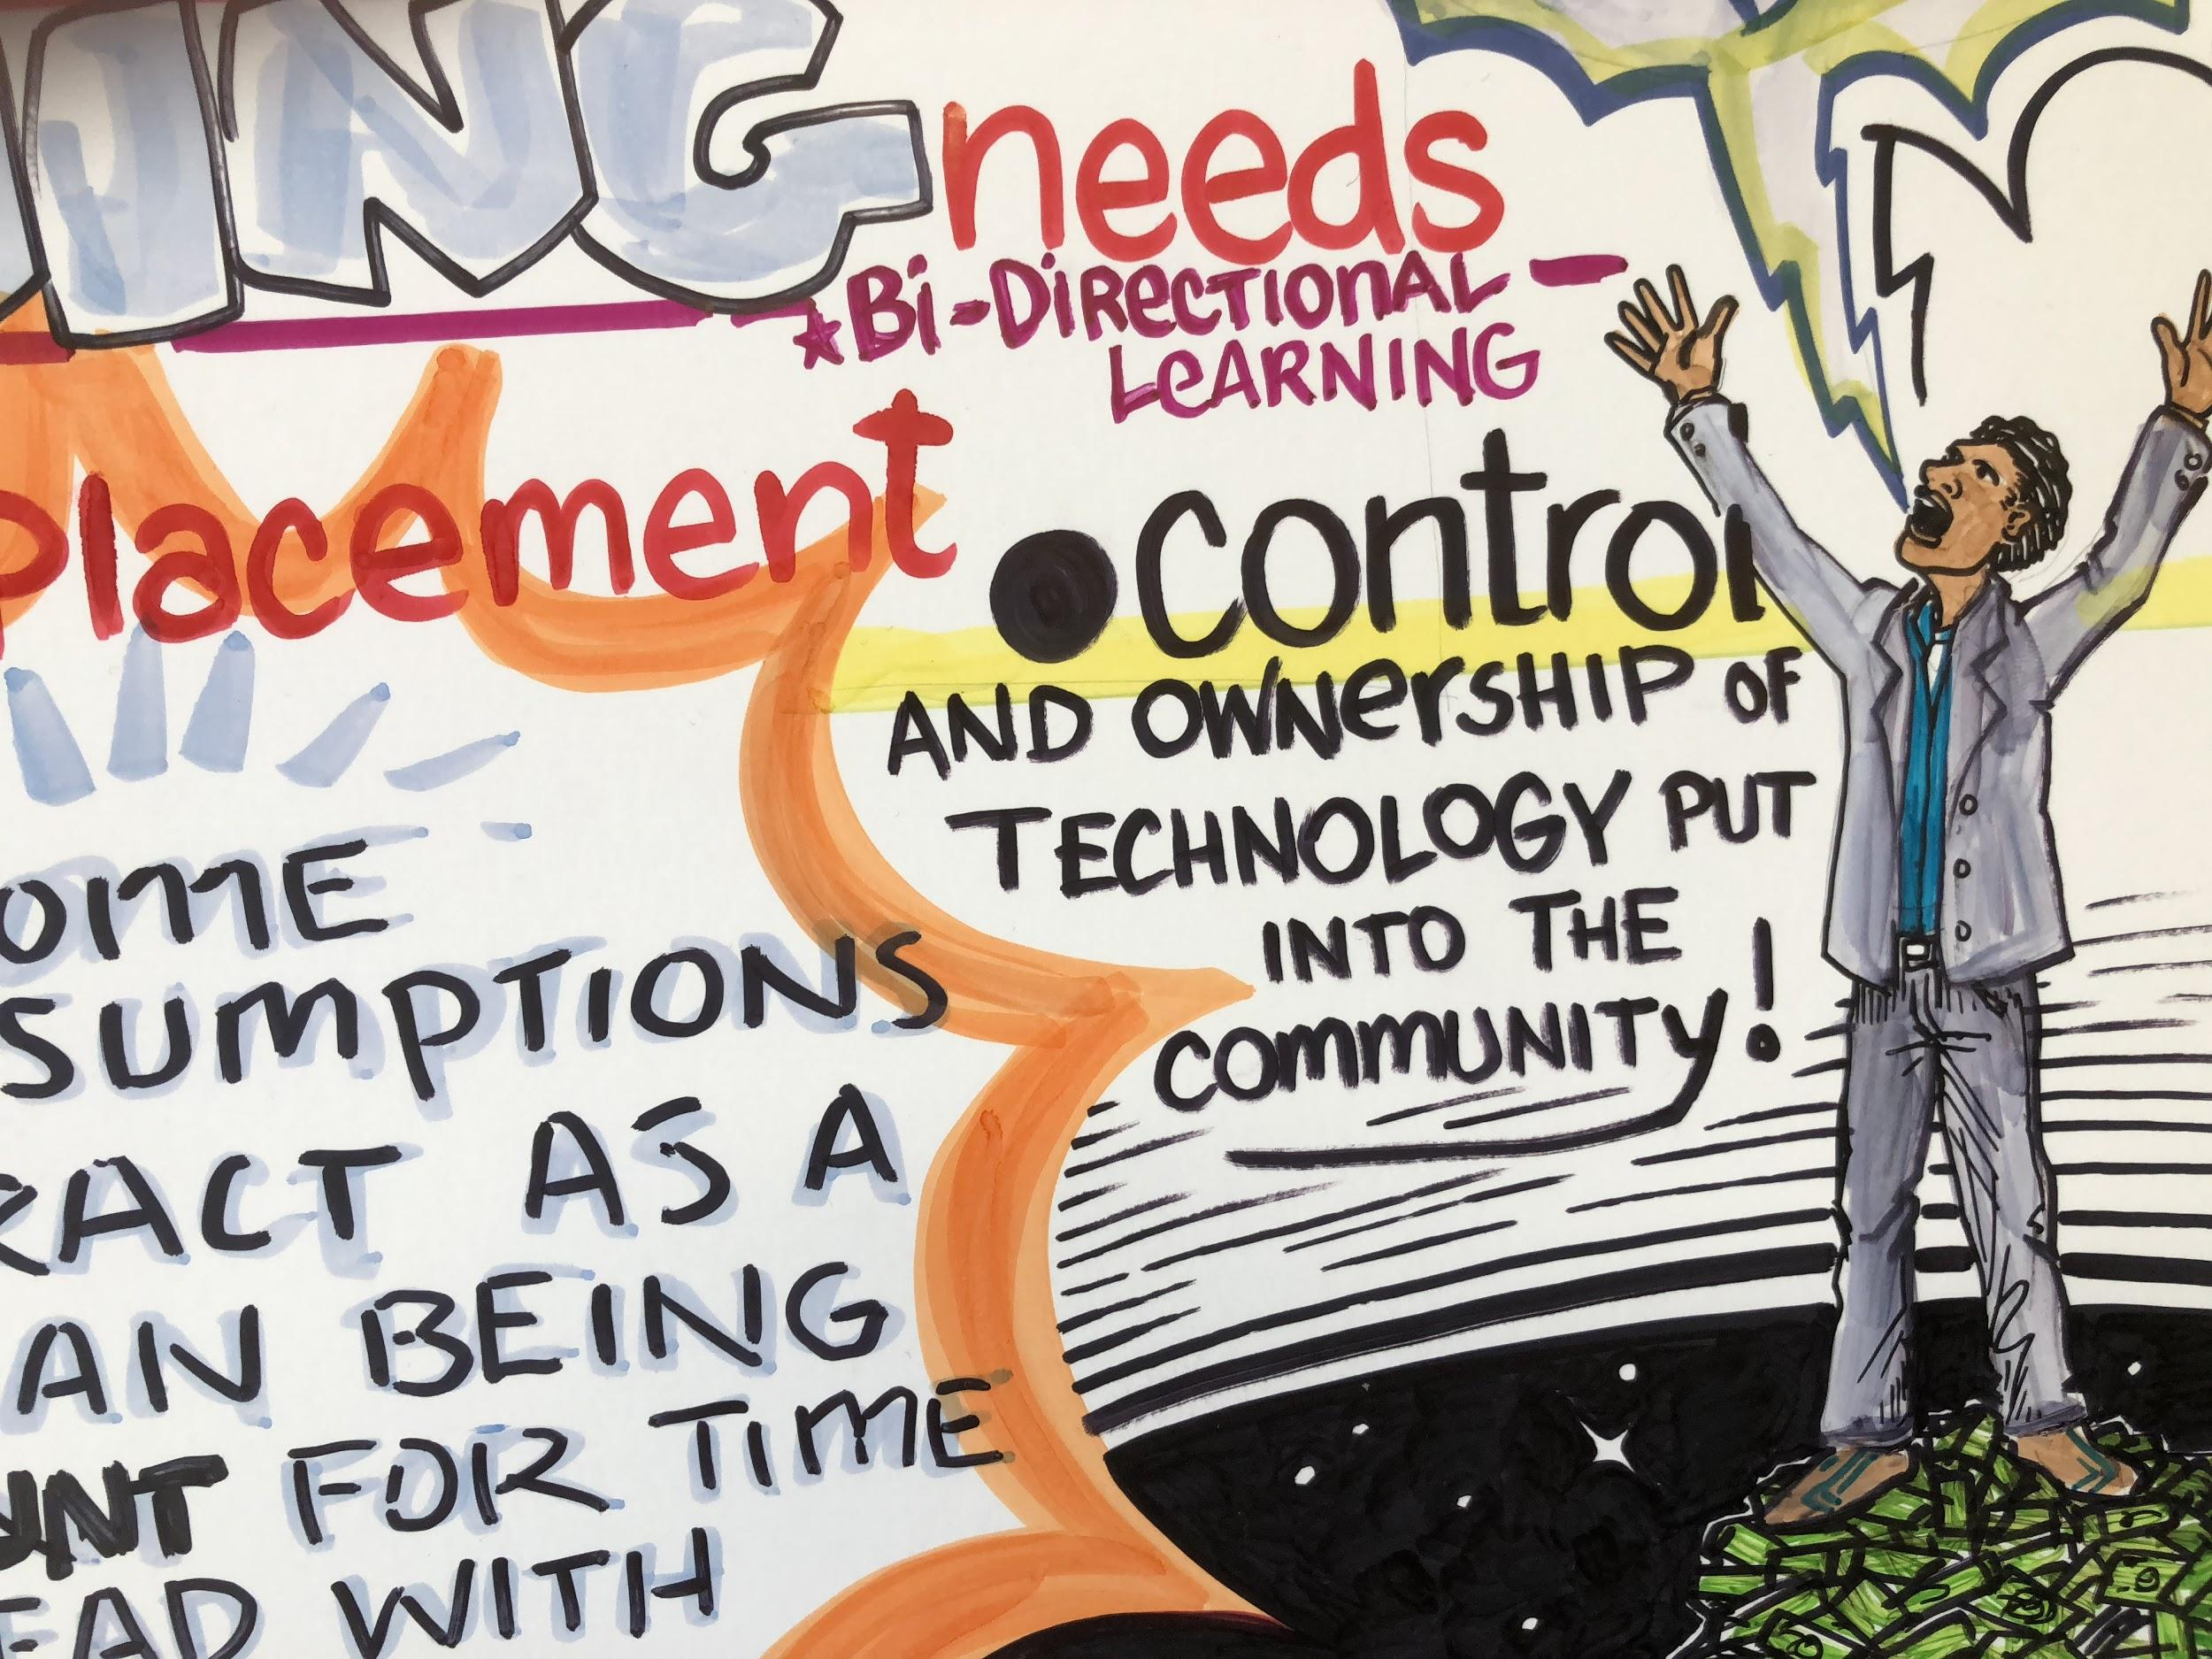 ING needs
* Bi-Directional —
Learning
placement
• Control
AND OWNERSHIP OF
TECHNOLOGY PUT
INTO THE
COMMUNITY!
OME
SUMPTIONS
RACT AS A
AN BEING
UNT FOR TIME
EAD WITH